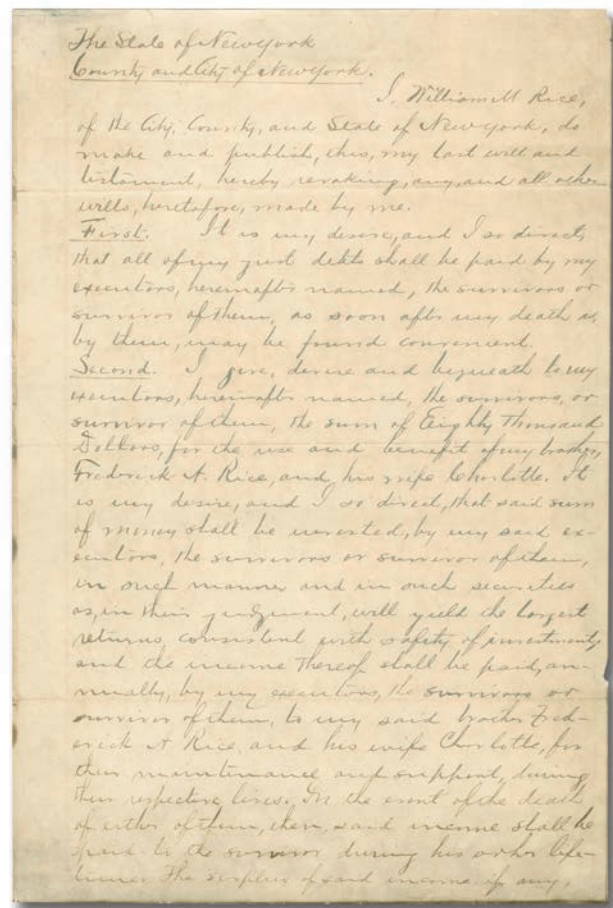 The State of New York
County and City of New York.
I, William M Rice,
of the City, County, and State of New York, do
make and publish, this, my last will and
testament, hereby revoking, any, and all other
wills, heretofore, made by me.
First. It is my desire, and I so direct,
that all of my just debts shall be paid by my
executors, hereinafter named, the survivors or
survivor of them, as soon after my death as,
by them, may be found convenient.
Second. I give, devise and bequeath to my
executors, hereinafter named, the survivors, or
survivor of them, the sum of Eighty Thousand
Dollars, for the use and benefit of my brother,
Frederick A. Rice, and, his wife Charlotte. It
is my desire, and I so direct, that said sum
of money shall be invested, by my said ex-
ecutors, the survivors or survivor of them,
in such manner and in such securities
as, in their judgment, will yield the largest
returns, consistent with safety of investment,
and the income thereof shall be paid, an-
nually, by my executors, the survivors or
survivor of them, to my said brother Fred-
erick A Rice, and his wife Charlotte, for
their maintenance and support, during
their respective lives. In the event of the death
of either of them, then, said income shall be
paid to the survivor, during his or her life-
time. The surplus of said income, if any,